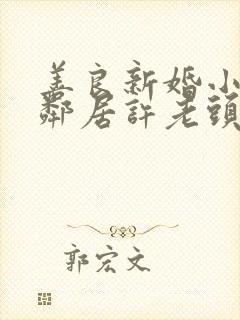 善良新婚小
鄰居許老頭
郭宏文